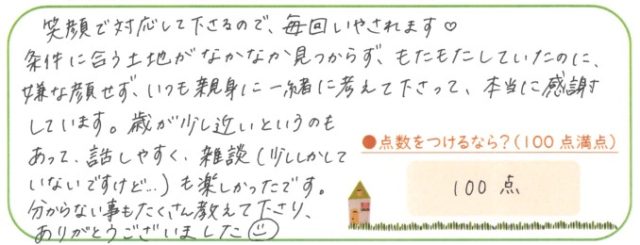 笑顔で対応して下さるので、毎回いやされます♡
条件に合う土地がなかなか見つからず、もたもたしていたのに、
嫌な顔せず、いつも親身に一緒に考えて下さって、本当に感謝
しています。歳が少し近いというのも
あって、話しやすく、雑談(少ししかして
いないですけど…)も楽しかったです。
分からない事もたくさん教えて下さり、
ありがとうございました☺
●点数をつけるなら?(100点満点)
100点